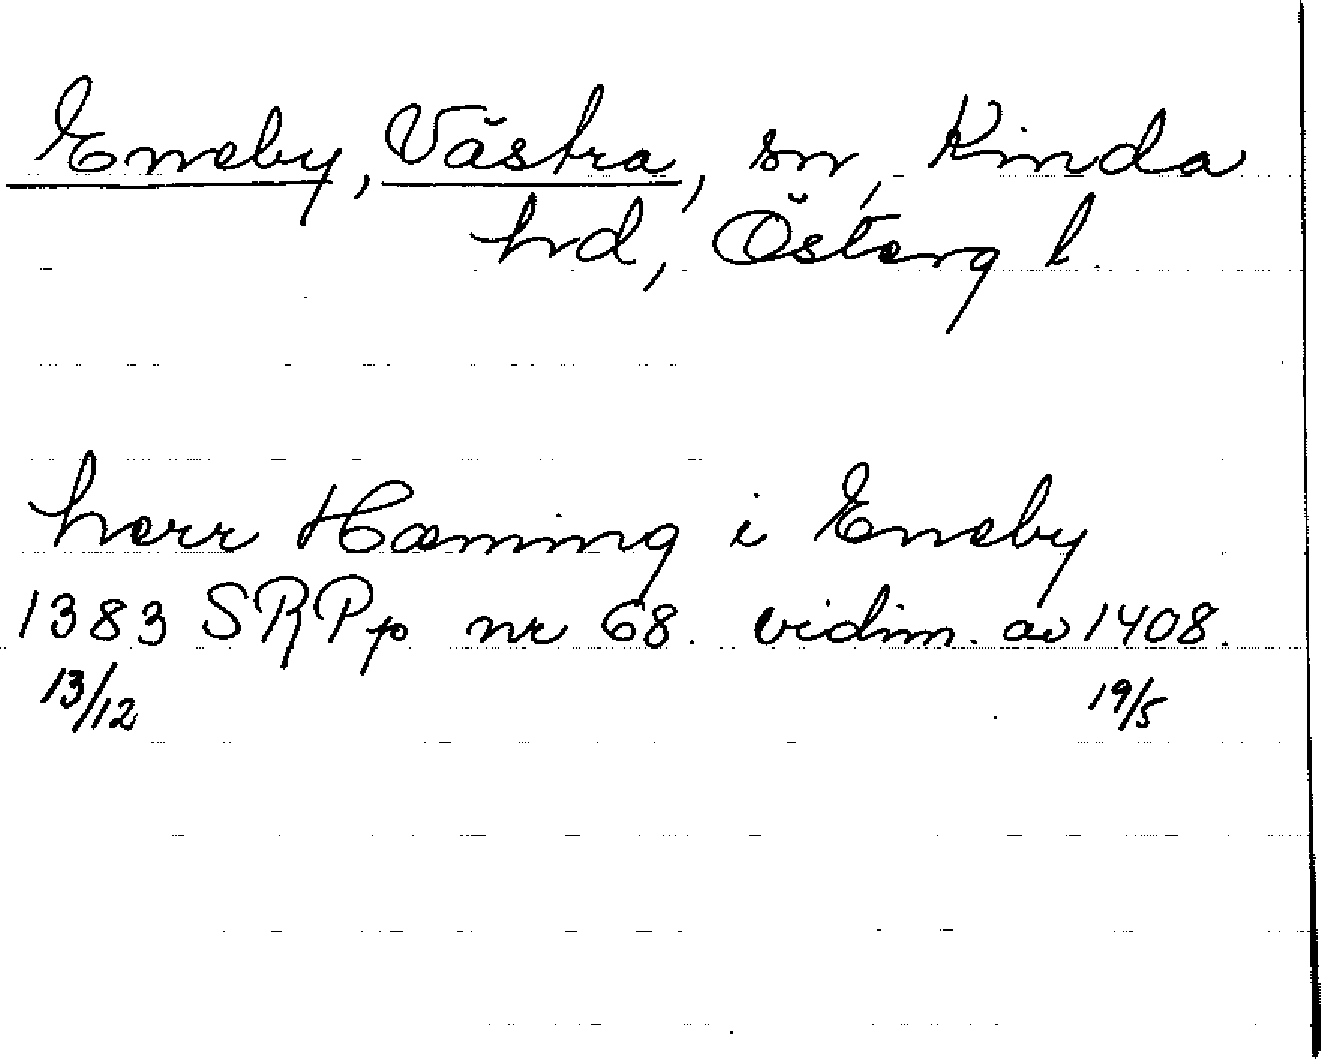 Eneby, Västra, sn, Kinda
hd, Österg l.
herr Hæming i Eneby
1383 SRPp nr 68. vidim. av 1408.
13/12 19/5